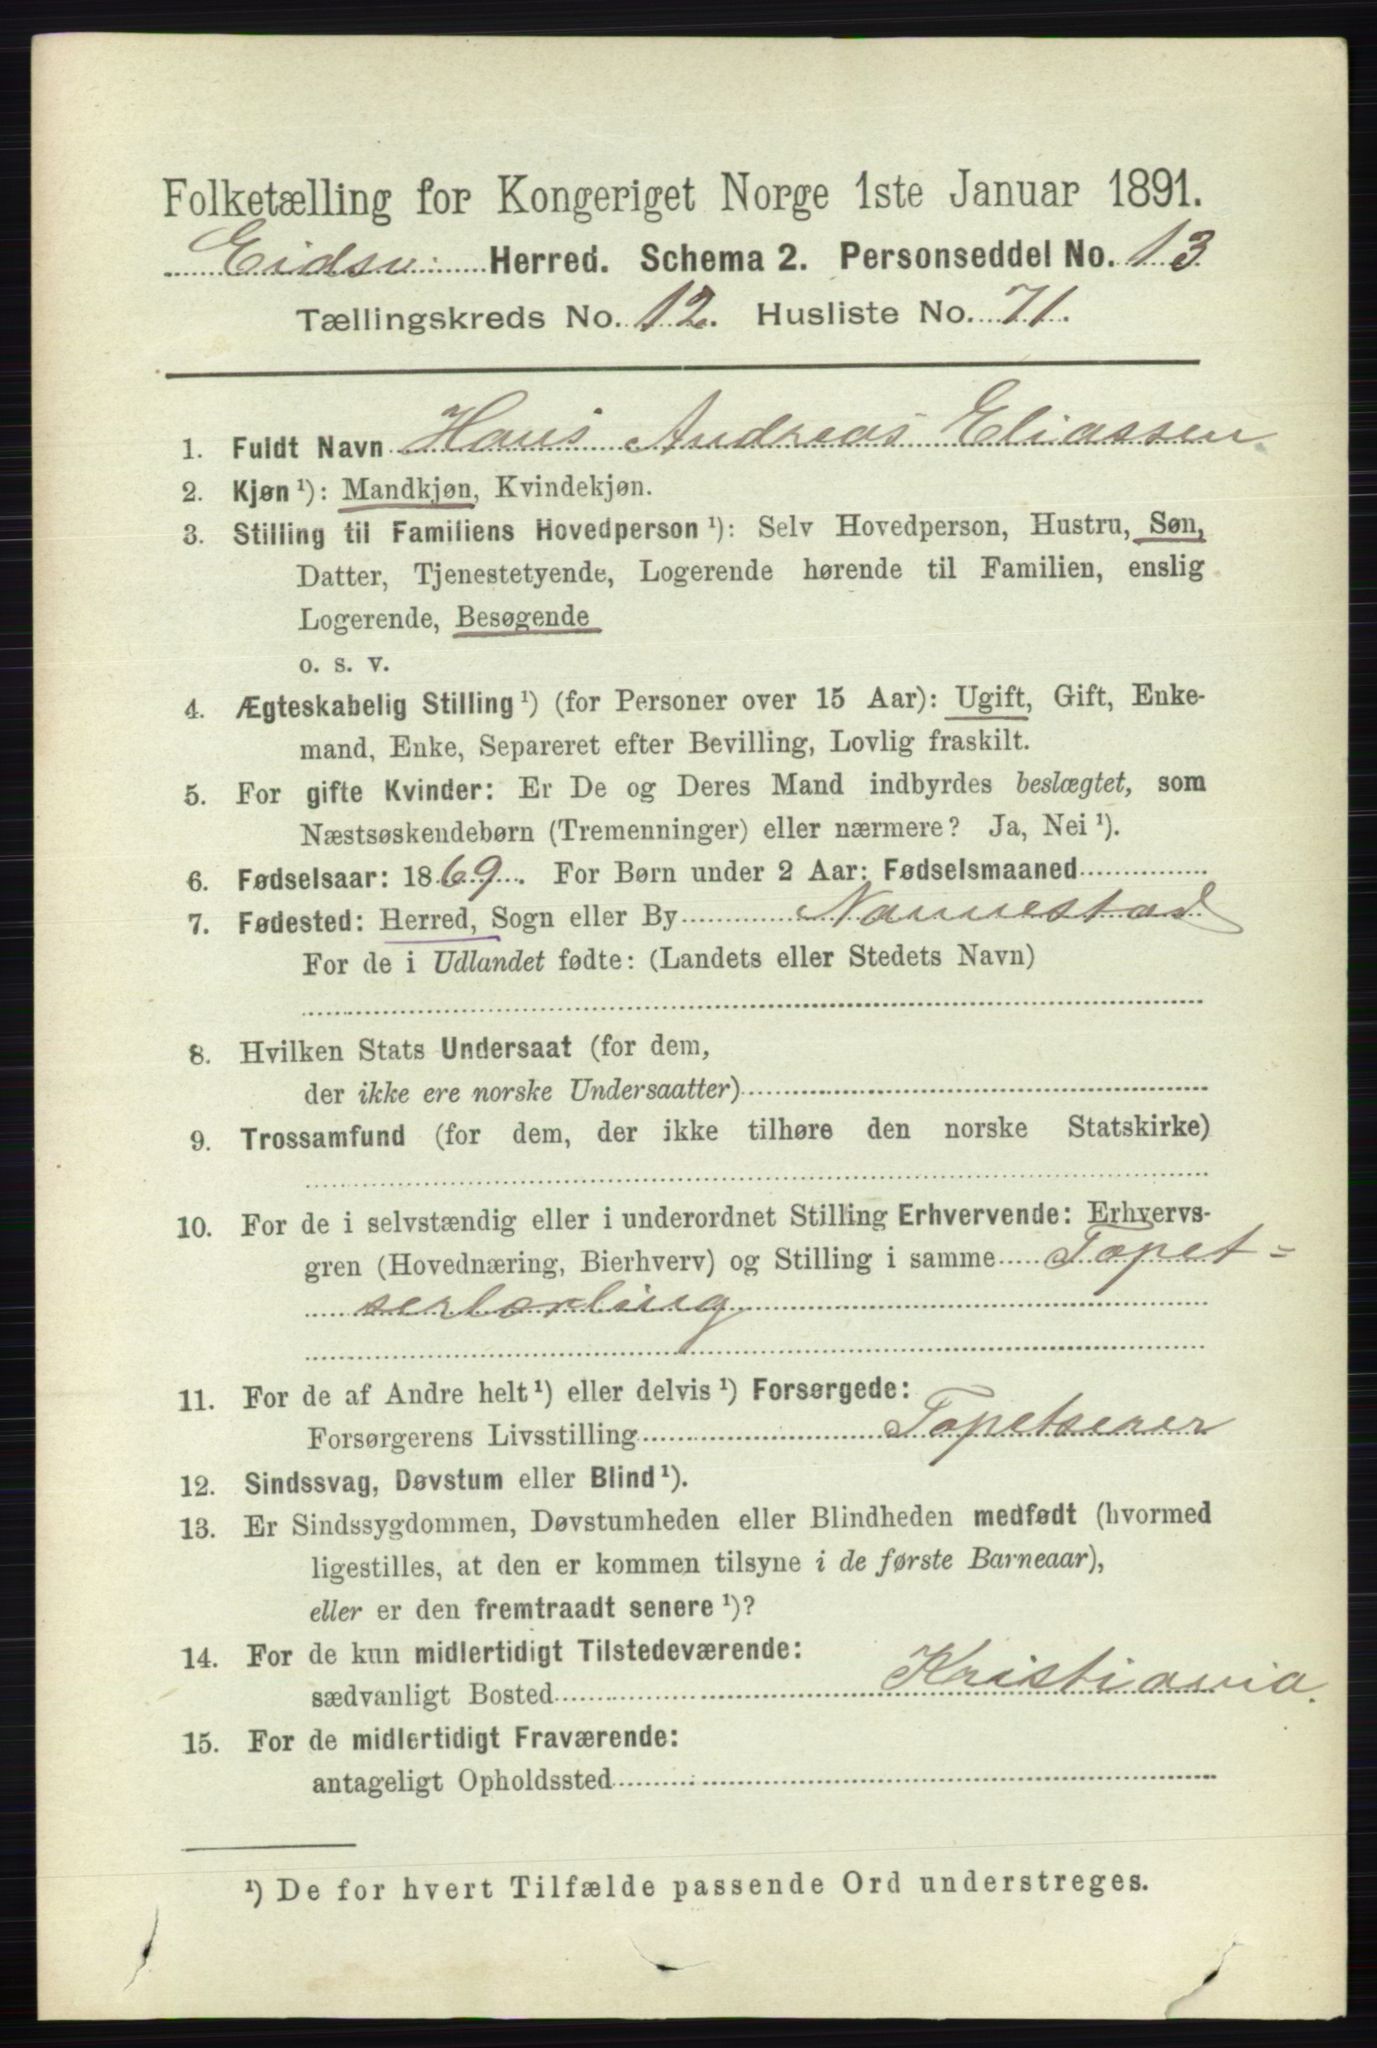 Folketælling for Kongeriget Norge 1ste Januar 1891.
Eidsv: Herred. Schema 2. Personseddel No. 13
Tællingskreds No. 12. Husliste No. 71.
1. Fuldt Navn Hans Andreas Eliassen
2. Kjøn ¹): Mandkjøn, Kvindekjøn.
3. Stilling til Familiens Hovedperson ¹): Selv Hovedperson, Hustru, Søn,
Datter, Tjenestetyende, Logerende hørende til Familien, enslig
Logerende, Besøgende
o. s. v.
4. Ægteskabelig Stilling ¹) (for Personer over 15 Aar): Ugift, Gift, Enke-
mand, Enke, Separeret efter Bevilling, Lovlig fraskilt.
5. For gifte Kvinder: Er De og Deres Mand indbyrdes beslægtet, som
Næstsøskendebørn (Tremenninger) eller nærmere? Ja, Nei ¹).
6. Fødselsaar: 1869. For Børn under 2 Aar: Fødselsmaaned
7. Fødested: Herred, Sogn eller By Nannestad
For de i Udlandet fødte: (Landets eller Stedets Navn)
8. Hvilken Stats Undersaat (for dem,
der ikke ere norske Undersaatter)
9. Trossamfund (for dem, der ikke tilhøre den norske Statskirke)
10. For de i selvstændig eller i underordnet Stilling Erhvervende: Erhvervs-
gren (Hovednæring, Bierhverv) og Stilling i samme Tapet=
serlærling
11. For de af Andre helt ¹) eller delvis ¹) Forsørgede:
Forsørgerens Livsstilling Tapetserer
12. Sindssvag, Døvstum eller Blind ¹).
13. Er Sindssygdommen, Døvstumheden eller Blindheden medfødt (hvormed
ligestilles, at den er kommen tilsyne i de første Barneaar),
eller er den fremtraadt senere ¹)?
14. For de kun midlertidigt Tilstedeværende:
sædvanligt Bosted Kristiania.
15. For de midlertidigt Fraværende:
antageligt Opholdssted
¹) De for hvert Tilfælde passende Ord understreges.